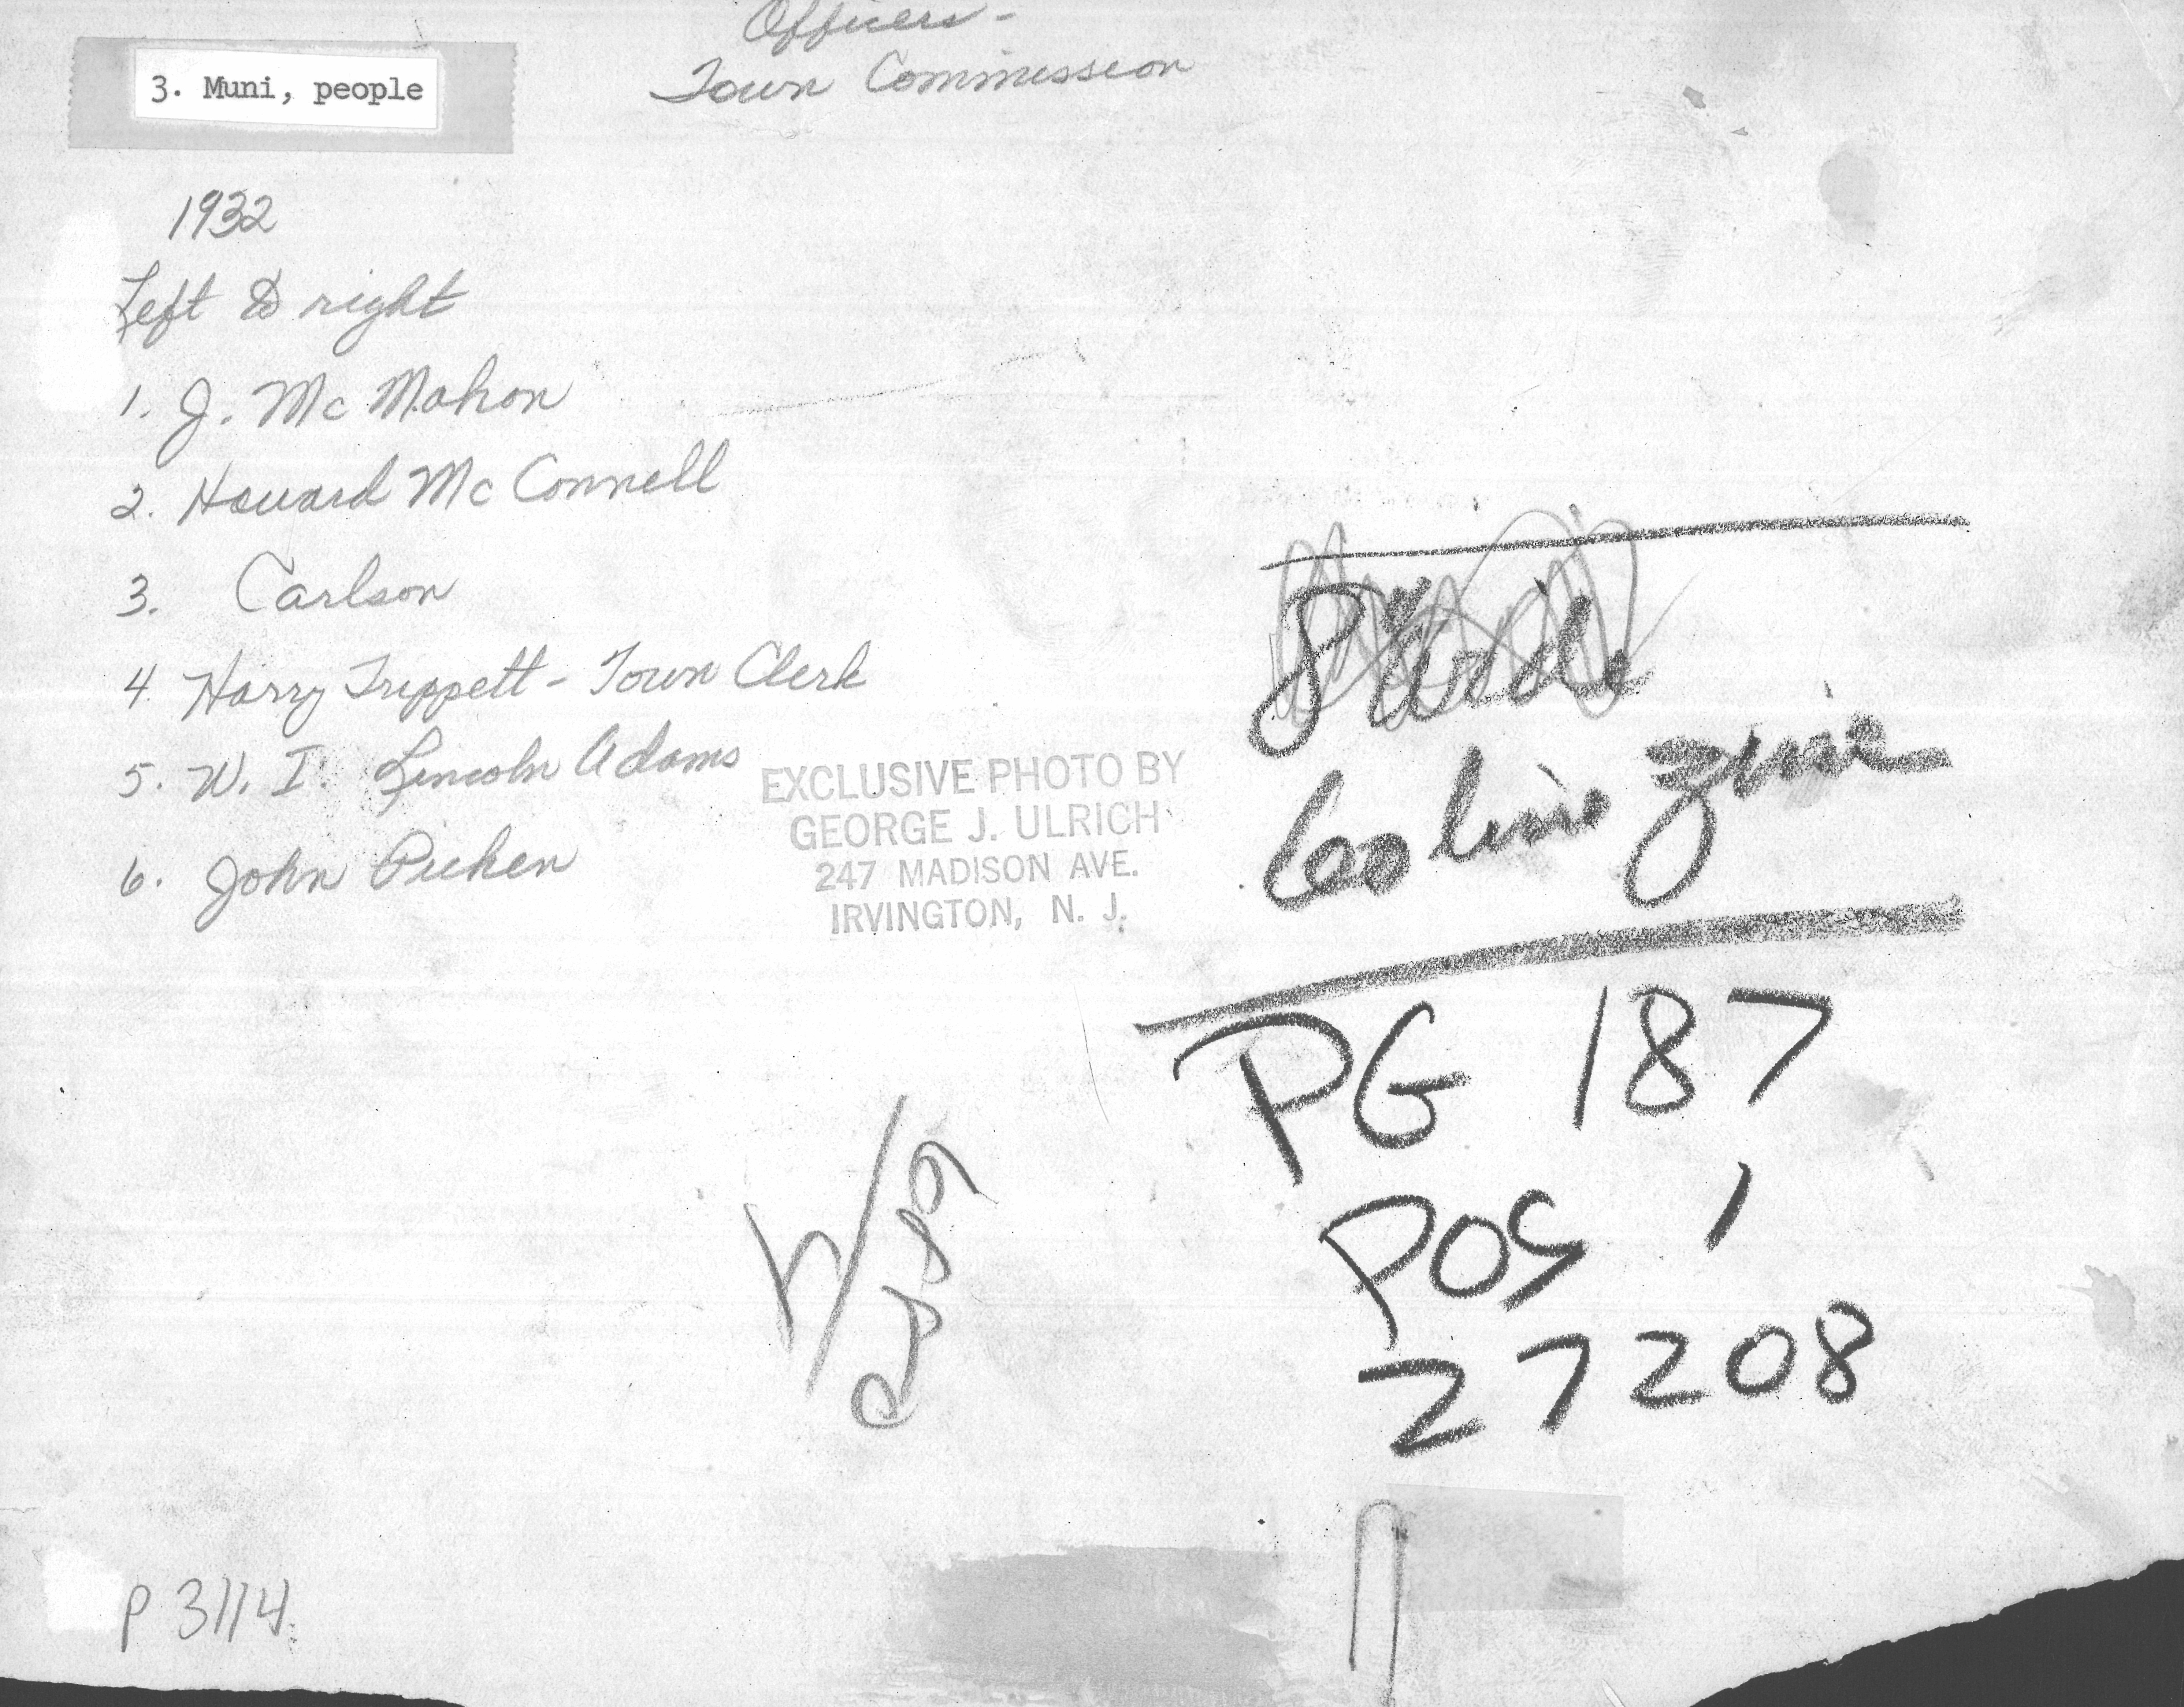 Officers -
Town Commission
3. Muni, people
1932
Left to right
1. J. Mc Mahon
2. Howard Mc Connell
3. Carlson
4. Harry Trippett - Town Clerk
5. W. I. Lincoln Adams
6. John Picken
EXCLUSIVE PHOTO BY
GEORGE J. ULRICH
247 MADISON AVE.
IRVINGTON, N. J.
8" wide
60 line zinc
PG 187
POS 1
27208
P 3114